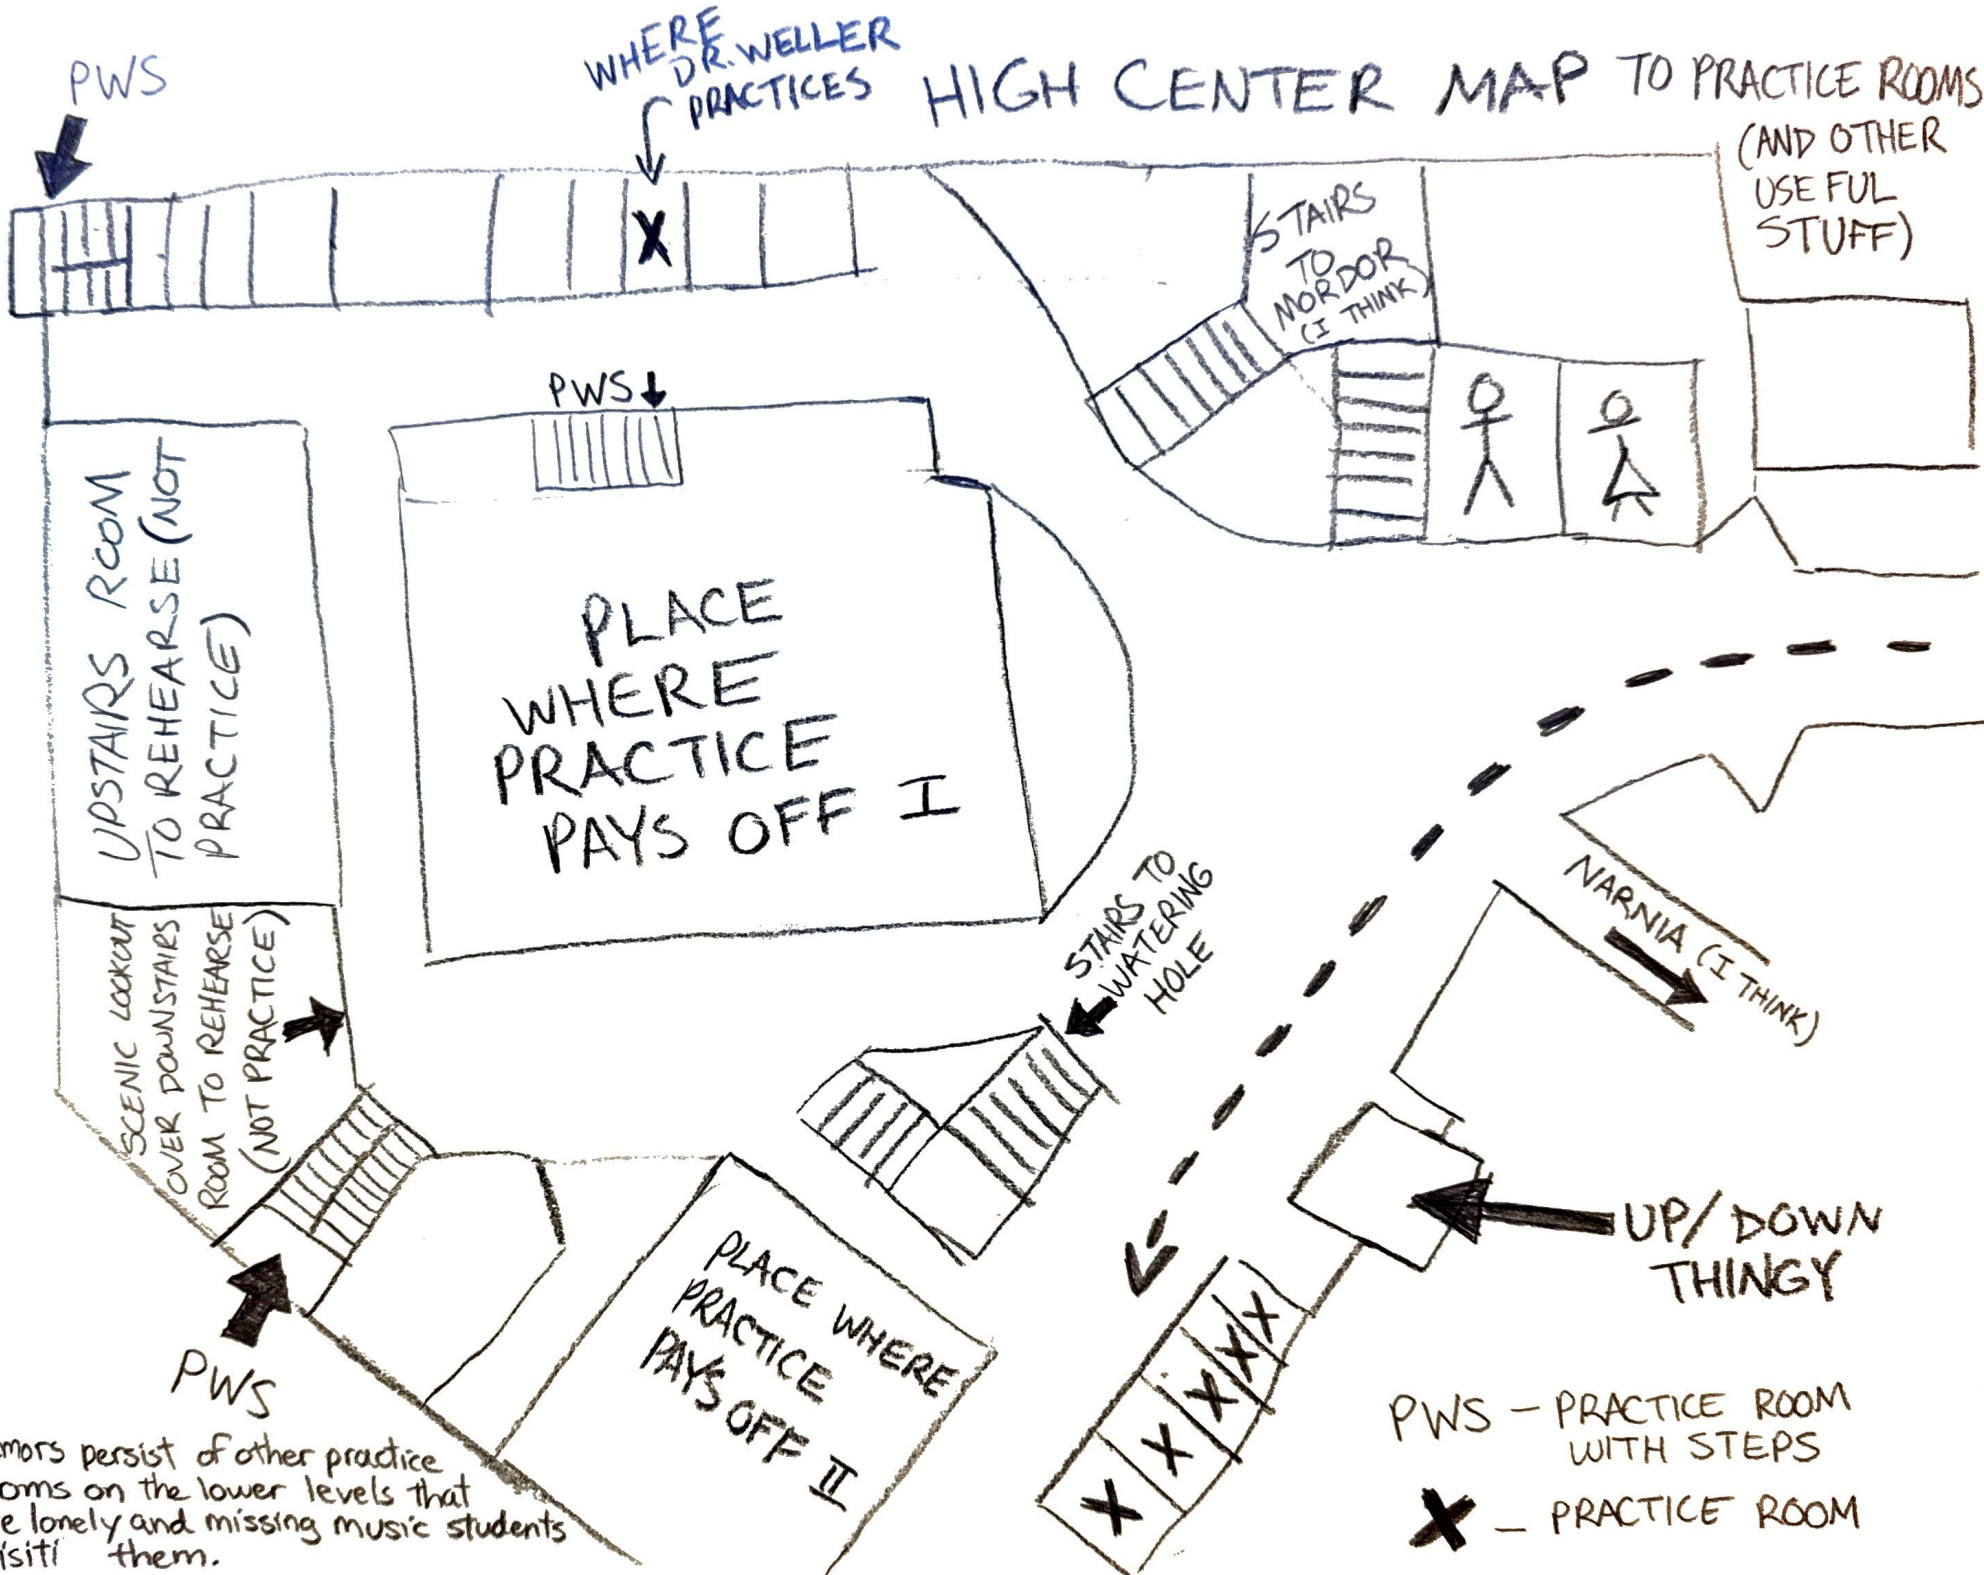 PWS
WHERE
DR. WELLER
PRACTICES
HIGH CENTER MAP TO PRACTICE ROOMS
(AND OTHER
USEFUL
STUFF)
X
STAIRS
TO
MORDOR
(I THINK)
PWS
UPSTAIRS ROOM
TO REHEARSE (NOT
PRACTICE)
PLACE
WHERE
PRACTICE
PAYS OFF I
SCENIC LOOKOUT
OVER DOWNSTAIRS
ROOM TO REHEARSE
(NOT PRACTICE)
STAIRS TO
WATERING
HOLE
NARNIA (I THINK)
UP/DOWN
THINGY
PLACE WHERE
PRACTICE
PAYS OFF II
X
X
X
X
X
PWS
mors persist of other practice
oms on the lower levels that
e lonely and missing music students
isiti them.
PWS - PRACTICE ROOM
WITH STEPS
X - PRACTICE ROOM